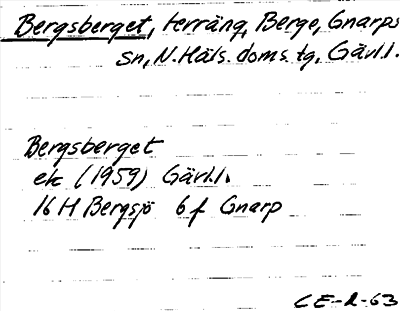 Bergsberget, terräng, Berge, Gnarps
sn, N. Häls. doms. tg, Gävl.l.
Bergsberget
ek (1959) Gävl.l.
16 H Bergsjö 6 f Gnarp
CE-2-63